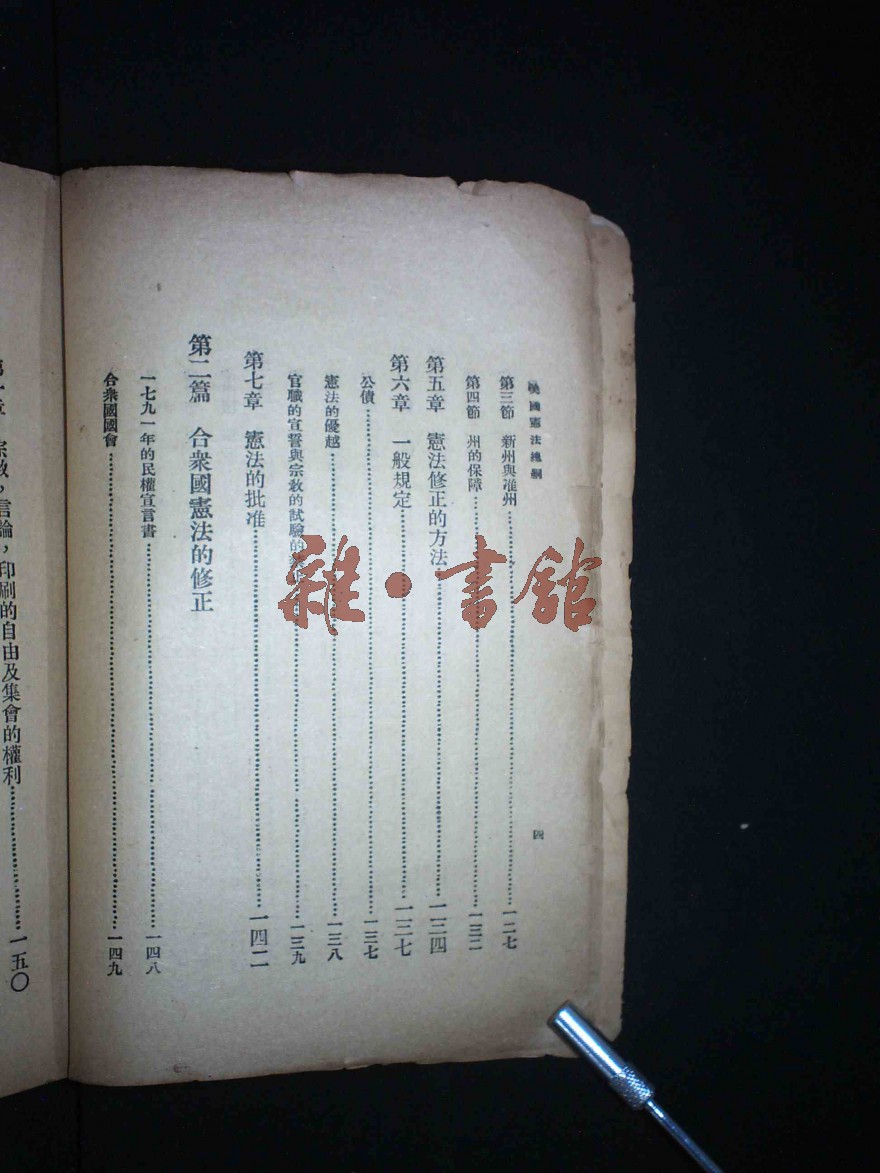 美國憲法總綱
四
第三節 新州與准州……一二七
第四節 州的保障……一三二
第五章 憲法修正的方法……一三四
第六章 一般規定……一三七
公債……一三七
憲法的優越……一三八
官職的宣誓與宗敎的試驗的……一三九
第七章 憲法的批准……一四二
第二篇 合衆國憲法的修正
一七九一年的民權宣言書……一四八
合衆國國會……一四九
第一章 宗敎，言論，印刷的自由及集會的權利……一五〇
雜·書館